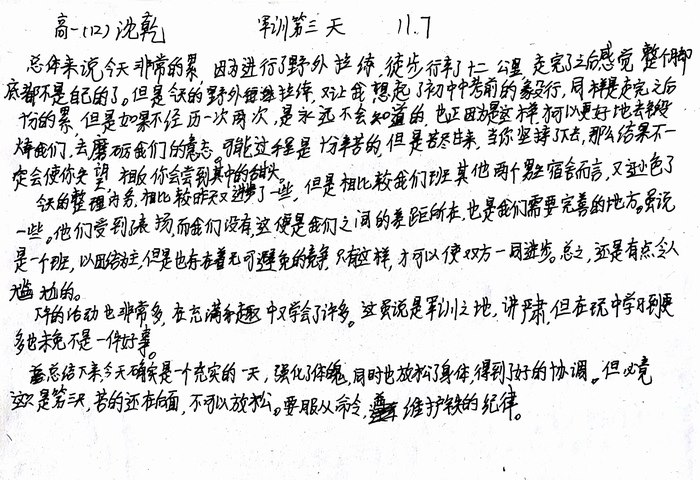 高一(12) 沈乾 军训第三天 11.7
总体来说今天非常的累,因为进行了野外拉练,徒步行军了十二公里,走完了之后感觉整个脚
底都不是自己的了。但是今天的野外拉练,又让我想起了初中中考前的暴行,同样是走完之后
十分的累,但是如果不经历一次两次,是永远不会知道的,也正因为是这样,才可以更好地去锻
炼我们,去磨砺我们的意志。可能过程是十分辛苦的,但是苦尽甘来,当你坚持了下去,那么结果不一
定会使你失望,相反你会尝到其中的甜头。
今天的整理内务,相比较昨天又进步了一些,但是相比较我们班其他两个男生宿舍而言,又逊色了
一些。他们受到了表扬而我们没有,这便是我们之间的差距所在,也是我们需要完善的地方。虽说
是一个班,以团结为主,但是也存在着无可避免的竞争,只有这样,才可以使双方一同进步。总之,还是有点令人
尴尬的。
下午的活动也非常多,在充满乐趣中又学会了许多。这虽说是军训之地,讲严肃,但在玩中学习到更
多也未免不是一件好事。
总结下来,今天确实是一个充实的一天,强化了体魄,同时也放松了身体,得到了好的协调。但毕竟
这只是第三天,苦的还在后面,不可以放松。要服从命令,维护铁的纪律。